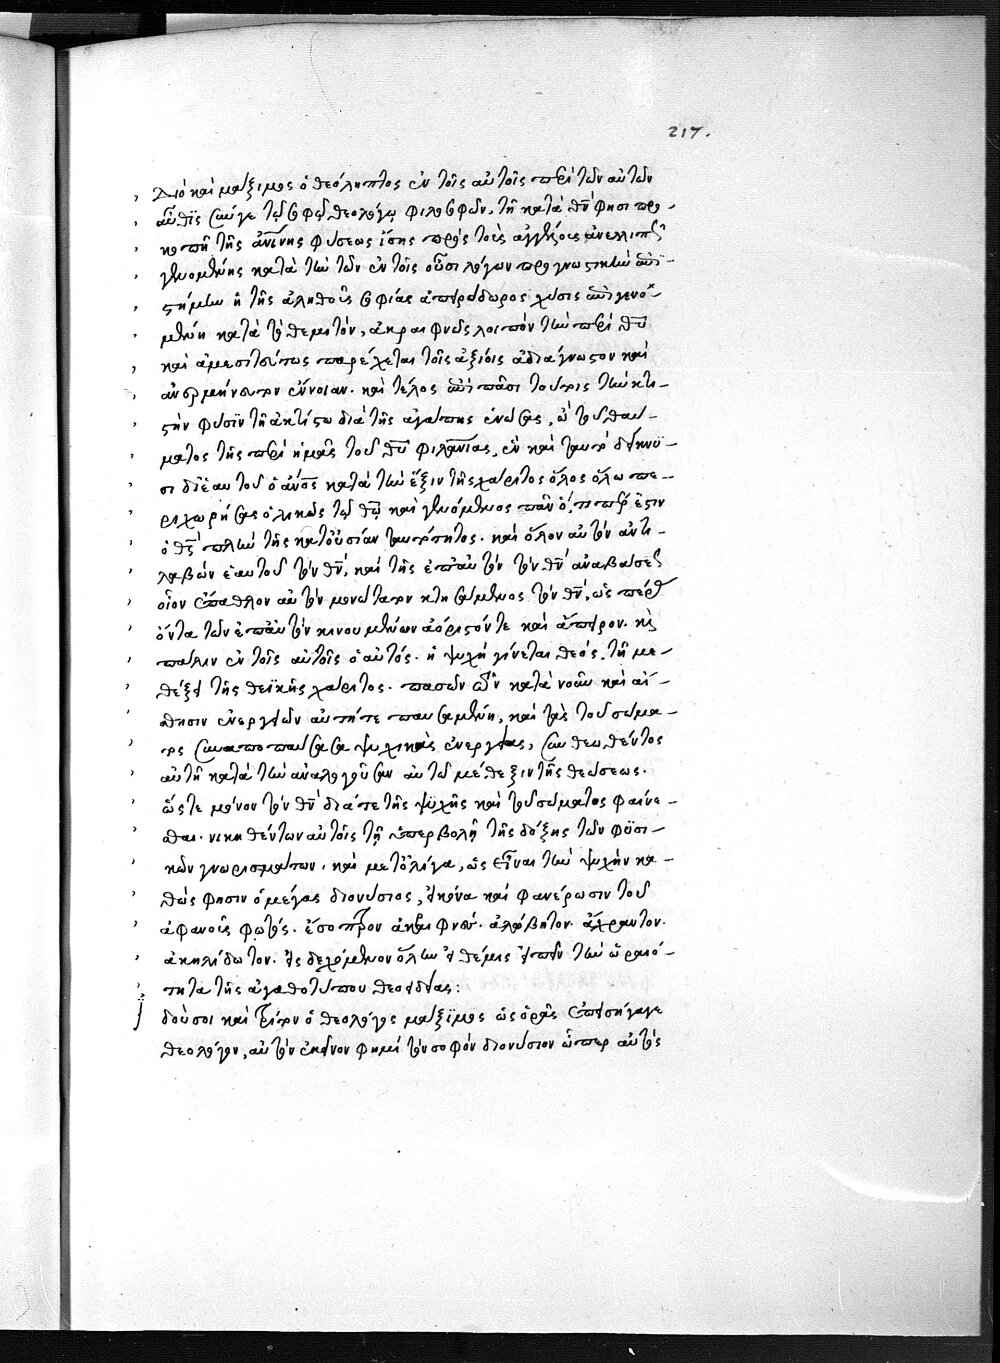 217.
Διὸ καὶ μάξιμος ὁ θεόληπτος ἐν τοῖς αὐτοῖς περὶ τῶν αὐτῶν
αὖθϊς τῷ σοφῷ θεολόγῳ φιλοσοφῶν, τῇ κατὰ θν̄ φησι προ-
κοπῇ τῆς ἀνίνης φύσεως ἴσης πρὸς τοὺς ἀγγέλους ἀνελλιπῶς
γενομένης κατὰ τὴν τῶν ἐν τοῖς οὖσι λόγων προγνωστικὴν ἐπι-
στήμην ἡ τῆς ἀληθοῦς σοφίας ἀπειρόδωρος χύσις ἐπιγενο-
μένη κατὰ τὸ θεμιτόν, ἀκραιφνῶς λοιπὸν τὴν περὶ θῡ
καὶ ἀμεσιτεύτως παρέχεται τοῖς ἀξίοις ἀδιάγνωστον καὶ
ἀνερμήνευτον ἔννοιαν. καὶ τέλος ἐπὶ πᾶσι τούτοις τὴν κτι-
στὴν φύσϊν τῇ ἀκτίστω διὰ τῆς ἀγάπης ἑνώσας, ὢ τοῦ θαύ-
ματος τῆς περὶ ἡμᾶς τοῦ θῡ φιλανίας, ἓν καὶ ταυτὸ δείκνυ-
σι δι' ἑαυτοῦ ὁ ἄνος κατὰ τὴν ἕξιν τῆς χάριτος ὅλος ὅλω πε-
ριχωρήσας ὁλικῶς τῷ θῷ καὶ γενόμενος πᾶν ὅ,τι πέρ ἐστιν
ὁ θς̄ πλὴν τῆς κατ' οὐσίαν ταυτότητος. καὶ ὅλον αὐτὸν ἀντι-
λαβὼν ἑαυτοῦ τὸν θν̄, καὶ τῆς ἐπ' αὐτὸν τὸν θν̄ ἀναβάσεως
οἷον ἔπαθλον αὐτὸν μονώτατον κτησάμενος τὸν θν̄, ὡς πέρας
ὄντα τῶν ἐπ' αὐτὸν κινουμένων ἀόριστόν τε καὶ ἄπειρον. καὶ
πάλιν ἐν τοῖς αὐτοῖς ὁ αὐτός. ἡ ψυχὴ γίνεται θεός, τῇ με-
θέξει τῆς θεϊκῆς χάριτος. πασῶν τῶν κατὰ νοῦν καὶ αἴ-
σθησιν ἐνεργειῶν αὐτή τε παυσαμένη, καὶ τὰς τοῦ σώμα-
τος συναποπαύσασα φυσικὰς ἐνεργείας, συνθεωθέντος
αὐτῇ κατὰ τὴν ἀναλογοῦσαν αὐτῶ μέθεξιν τῆς θεώσεως.
ὥστε μόνον τὸν θν̄ διά τε τῆς ψϋχῆς καὶ τοῦ σώματος φαίνε-
σθαι. νικηθέντων αὐτοῖς τῇ ὑπερβολῇ τῆς δόξης τῶν φϋσι-
κῶν γνωρισμάτων. καὶ μετ' ὀλίγα, ὡς εἶναι τὴν ψυχὴν κα-
θώς φησιν ὁ μέγας διονύσιος, εἰκόνα καὶ φανέρωσιν τοῦ
ἀφανοῦς φωτός. ἔσοπτρον ἀκραιφνές. ἀλώβητον. ἄχραντον.
ἀκηλίδωτον. εἰσδεχόμενον ὅλην εἰ θέμις εἰπεῖν τὴν ὡραιό-
τητα τῆς ἀγαθοτύπου θεοειδείας:
δοῦσοι καὶ τρίτον ὁ θεολόγος μάξϊμος ὡς ὁρᾷς ἐπεισήγαγε
θεολόγον, αὐτὸν ἐκεῖνον φημὶ τὸν σοφὸν διονύσιον ὥσπερ αὐτὸς